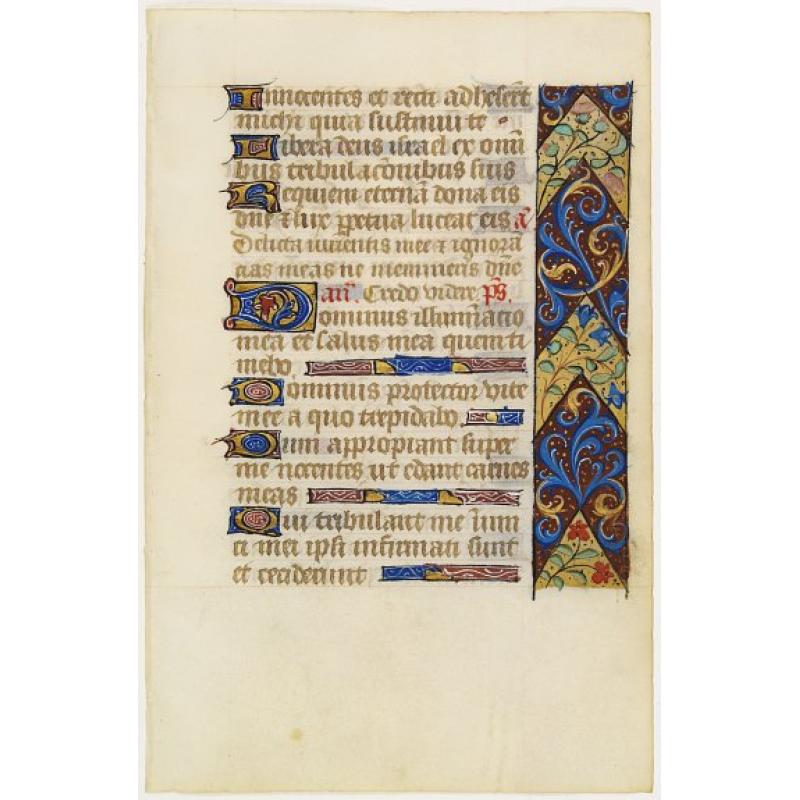 Innocentes et recti adheserūt
michi quia sustinui te
Libera deus israel ex omī
bus tribulacōnibus suis
Requiem eternā dona eis
dn̄e & lux ꝑpetua luceat eis ā
Delicta iuuentis mee & ignorā
cias meas ne memineris dn̄e
an̄. Credo videre p̄s.
Dominus illumiātio
mea et salus mea quem ti
mebo.
Dominus protector vite
mee a quo trepidabo.
Dum appropiant super
me nocentes ut edant carnes
meas
Qui tribulant me inim
ci mei ipsi infirmati sunt
et ceciderunt